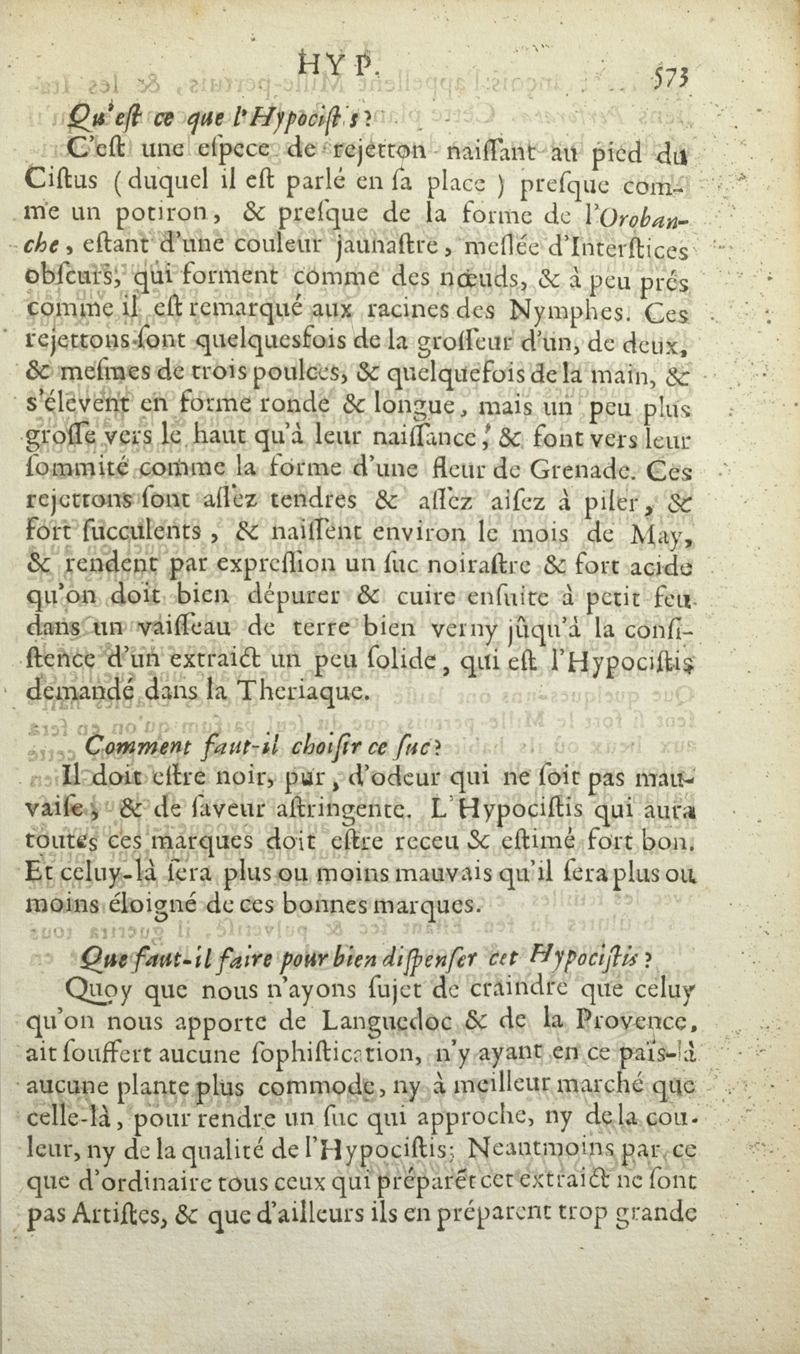 HYP. 573
Qu'eſt ce que l'Hypociſt s?
C'eſt une eſpece de rejetton naiſſant au pied du
Ciſtus (duquel il eſt parlé en ſa place) preſque com-
me un potiron, & preſque de la forme de l'Oroban-
che, eſtant d'une couleur jaunaſtre, meſlée d'Interſtices
obſcurs, qui forment comme des nœuds, & à peu prés
comme il eſt remarqué aux racines des Nymphes. Ces
rejettons ſont quelquesfois de la groſſeur d'un, de deux,
& meſmes de trois poulces, & quelquefois de la main, &
s'élevent en forme ronde & longue, mais un peu plus
groſſe vers le haut qu'à leur naiſſance, & font vers leur
ſommité comme la forme d'une fleur de Grenade. Ces
rejettons ſont aſſez tendres & aſſez aiſez à piler, &
fort ſucculents, & naiſſent environ le mois de May,
& rendent par expreſſion un ſuc noiraſtre & fort acide
qu'on doit bien dépurer & cuire enſuite à petit feu
dans un vaiſſeau de terre bien verny jûqu'à la conſi-
ſtence d'un extraict un peu ſolide, qui eſt l'Hypociſtis
demandé dans la Theriaque.
Comment faut-il choiſir ce ſuc?
Il doit eſtre noir, pur, d'odeur qui ne ſoit pas mau-
vaiſe, & de ſaveur aſtringente. L'Hypociſtis qui aura
toutes ces marques doit eſtre receu & eſtimé fort bon.
Et celuy-là ſera plus ou moins mauvais qu'il ſera plus ou
moins éloigné de ces bonnes marques.
Que faut-il faire pour bien diſpenſer cet Hypociſtis?
Quoy que nous n'ayons ſujet de craindre que celuy
qu'on nous apporte de Languedoc & de la Provence,
ait ſouffert aucune ſophiſtication, n'y ayant en ce païs-là
aucune plante plus commode, ny à meilleur marché que
celle-là, pour rendre un ſuc qui approche, ny de la cou-
leur, ny de la qualité de l'Hypociſtis; Neantmoins par ce
que d'ordinaire tous ceux qui préparẽt cet extraict ne ſont
pas Artiſtes, & que d'ailleurs ils en préparent trop grande